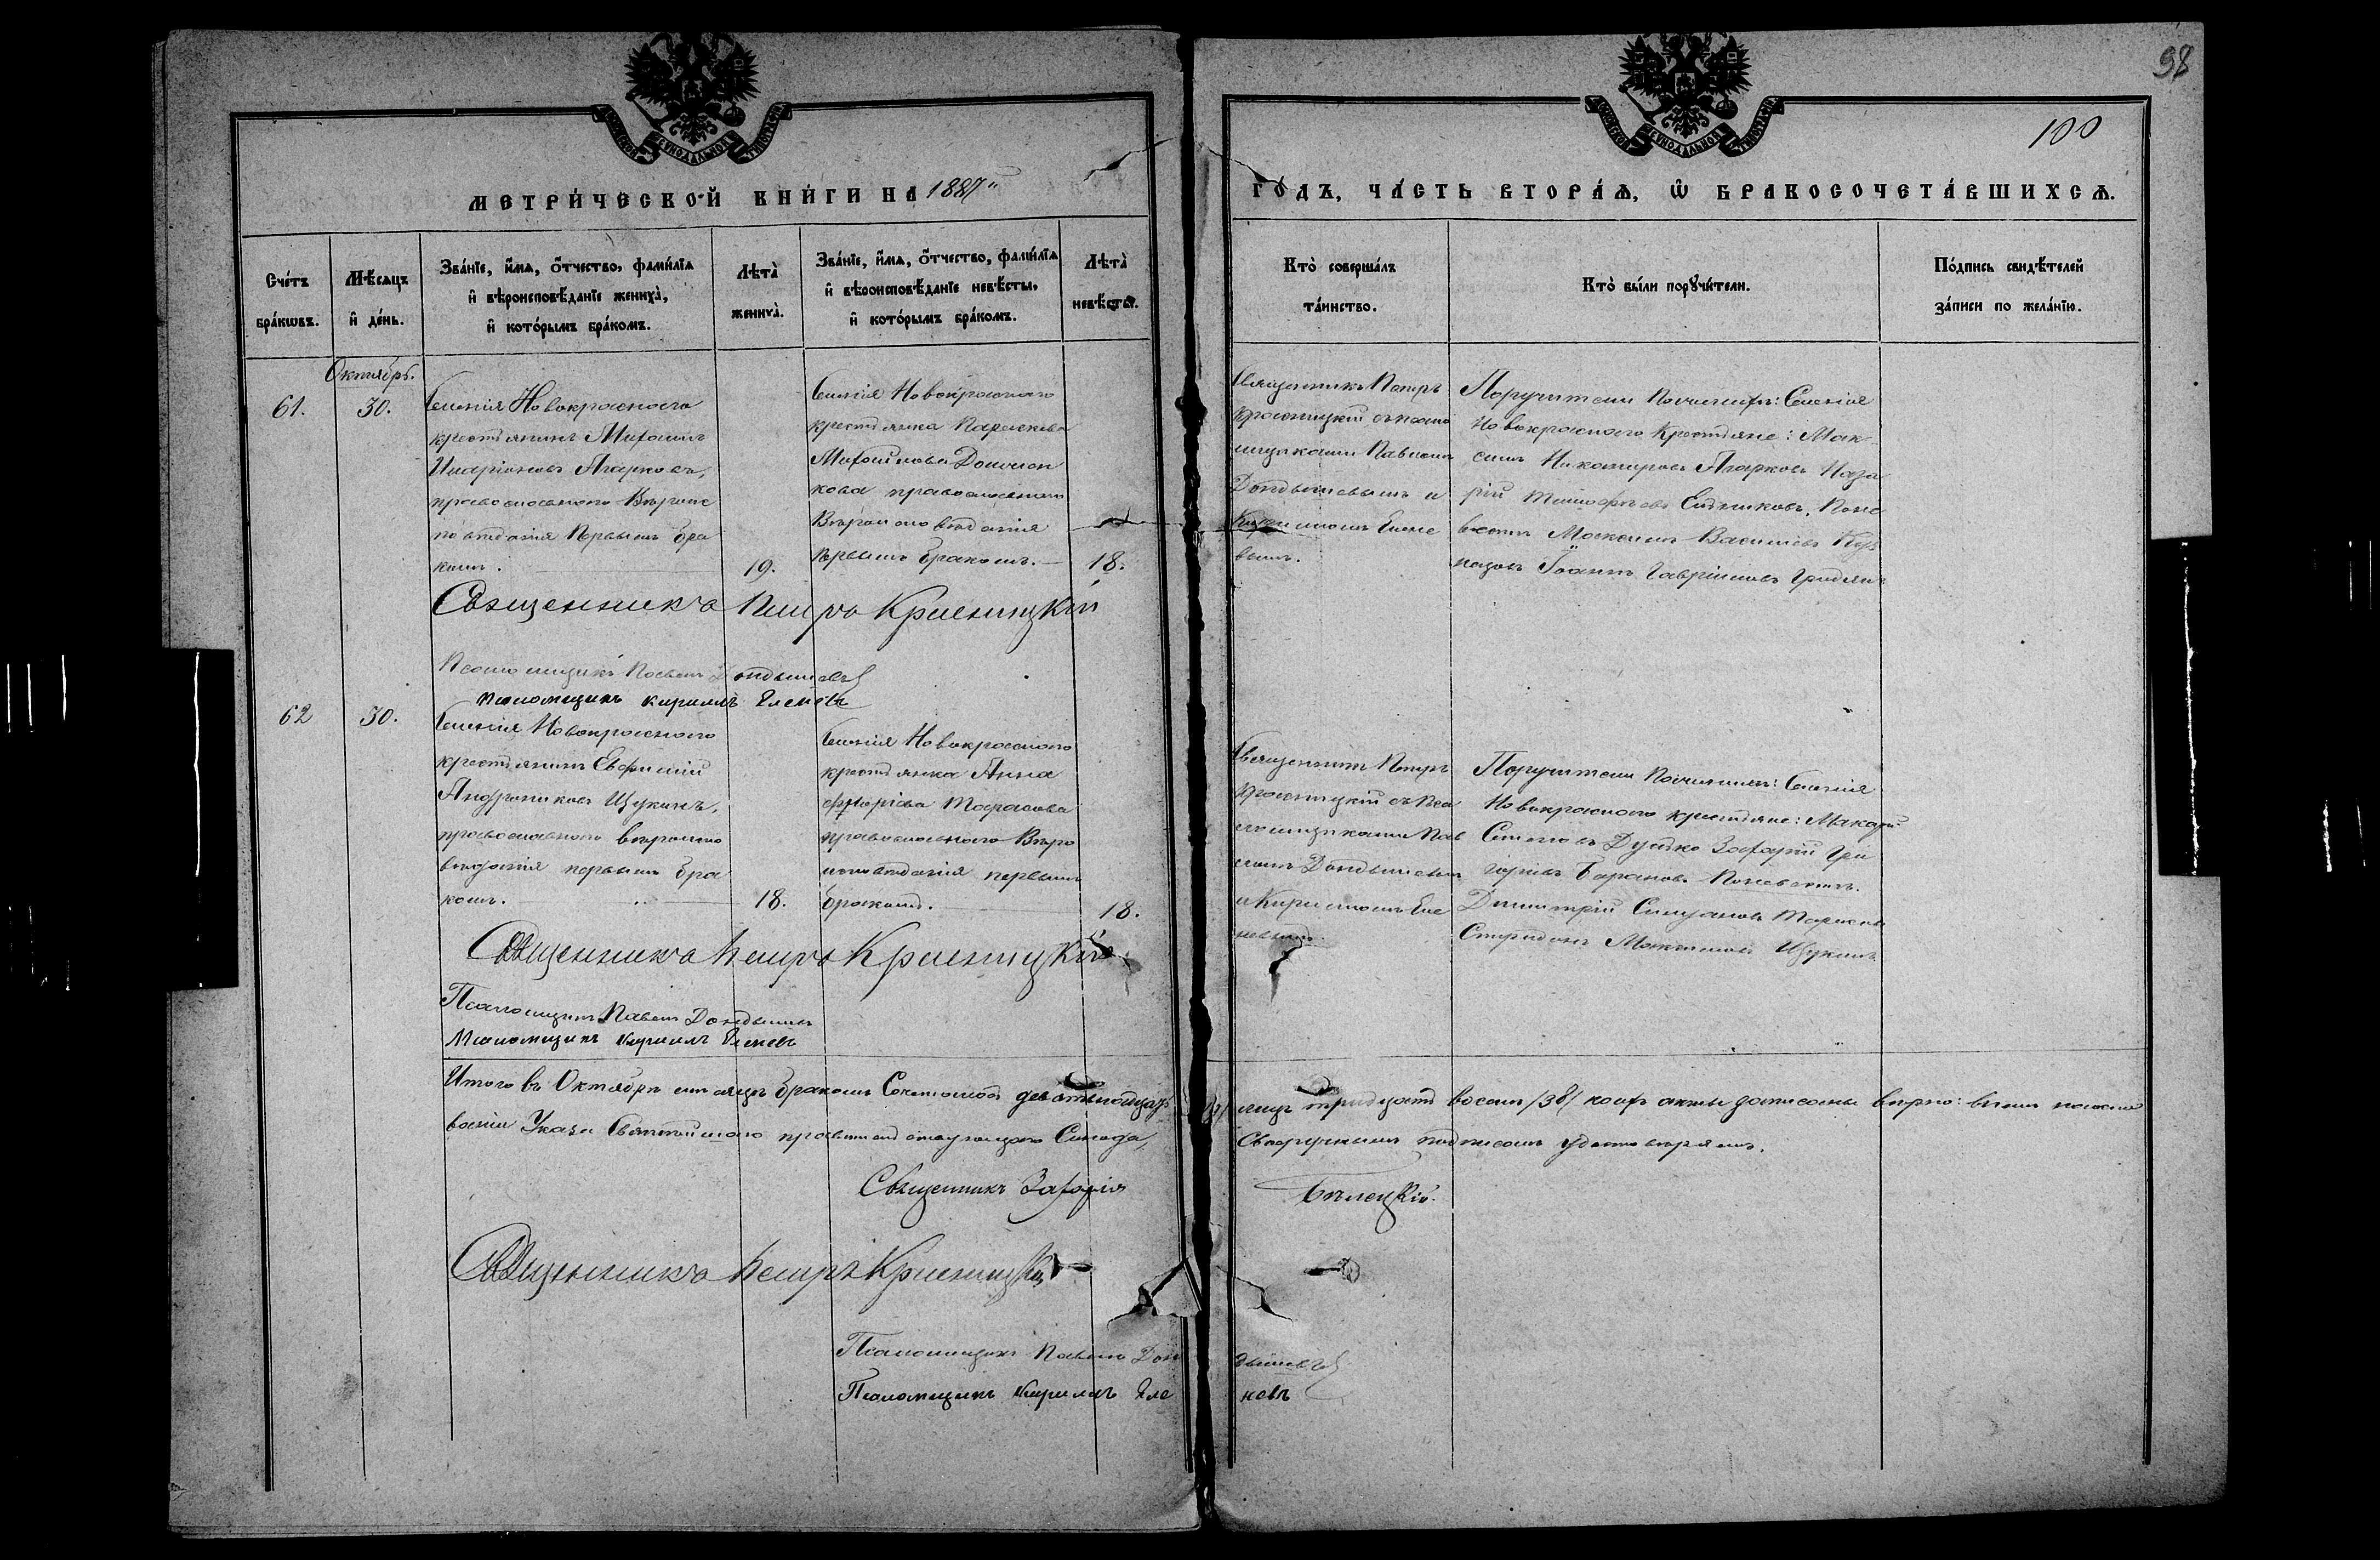 98
100
МЕТРИ́ЧЕСКОЙ КНИ́ГИ НА 1887
ГОДЪ, ЧА́СТЬ ВТОРА́Ѧ, Ѡ БРАКОСОЧЕТА́ВШИХСѦ.
Сче́тъ бра́кѡвъ.
Мѣ́сѧцъ и҆ де́нь.
Зва́нїе, и҆́мѧ, ѻ҆́тчество, фами́лїѧ
и҆ вѣроисповѣ́данїе жениха̀,
и҆ кото́рымъ бра́комъ.
Лѣта̀ жениха̀.
Зва́нїе, и҆́мѧ, ѻ҆́тчество, фами́лїѧ
и҆ вѣроисповѣ́данїе невѣ́сты,
и҆ кото́рымъ бра́комъ.
Лѣта̀ невѣ́сты.
Кто̀ соверша́лъ
та́инство.
Кто̀ бы́ли порꙋчи́тели.
По́дпись свидѣ́телей
за́писи по жела́нїю.
Октябрь.
61.
30.
Селенія Новокрасного
крестьянинъ Михаилъ
Иларіоновъ Агарковъ,
православнаго Вѣроис
повѣданія Первымъ бра
комъ.
19.
Селенія Новокрасного
крестьянка Параскева
Михайлова
кова православнаго
Вѣроисповѣданія
Первымъ бракомъ.
18.
Священникъ Петръ
Красницкій съ псало
мщиками Павломъ
Дондышевымъ и
Кирилломъ Елене
вымъ.
Поручители По женихѣ: Селенія
Новокрасного Крестьяне: Мак
симъ Никаноровъ Агарковъ Наза
рій Тимофѣевъ Ситниковъ, По не
вестѣ Максимъ Васильевъ
Іоаннъ Гавріиловъ
Священникъ Петръ Красницкій
Псаломщикъ Павелъ Дондышевъ
Псаломщикъ Кириллъ Еленевъ
62
30.
Селенія Новокрасного
крестьянинъ Евфимій
Андрониковъ Щукинъ,
православнаго вѣроиспо
вѣданія первымъ бра
комъ.
18.
Селенія Новокрасного
крестьянка Анна
Тарасова
православнаго Вѣро
исповѣданія первымъ
бракомъ.
18.
Священникъ Петръ
Красницкій съ Пса
ломщиками Пав
ломъ Дондышевымъ
и Кирилломъ Еле
невымъ.
Поручители По женихѣ: Селенія
Новокрасного крестьяне: Макарій
Дутко Захарій Гри
горьевъ Барановъ По невестѣ.
Димитрій Тарасовъ
Спиридонъ Максимовъ Щукинъ.
Священникъ Петръ Красницкій
Псаломщикъ Павелъ Дондышевъ
Псаломщикъ Кириллъ Еленевъ
Итого въ Октябрѣ мѣсяцѣ бракомъ Сочеталось девятьнадцать лицъ тридцать восемь /38/ акты дописаны вѣрно:
Указа Святѣйшаго правительствующаго Синода, Своеручнымъ подписомъ удостовѣряемъ.
Священникъ Захарія Бѣлецкій.
Священникъ Петръ Красницкій
Псаломщикъ Павелъ Дондышевъ
Псаломщикъ Кириллъ Еленевъ